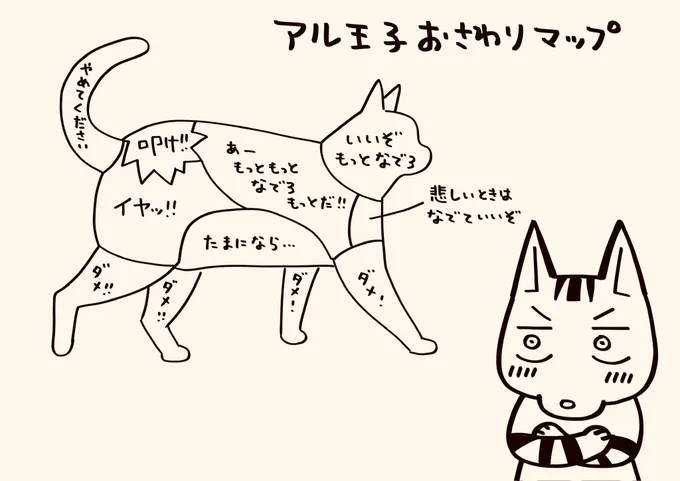 アル王子おさわりマップ
やめてください
叩け!!
あー
もっともっと
なでろ
もっとだ!!
いいぞ
もっとなでろ
悲しいときは
なでていいぞ
イヤッ!!
たまになら…
ダメ!!
ダメ!!
ダメ!
ダメ!